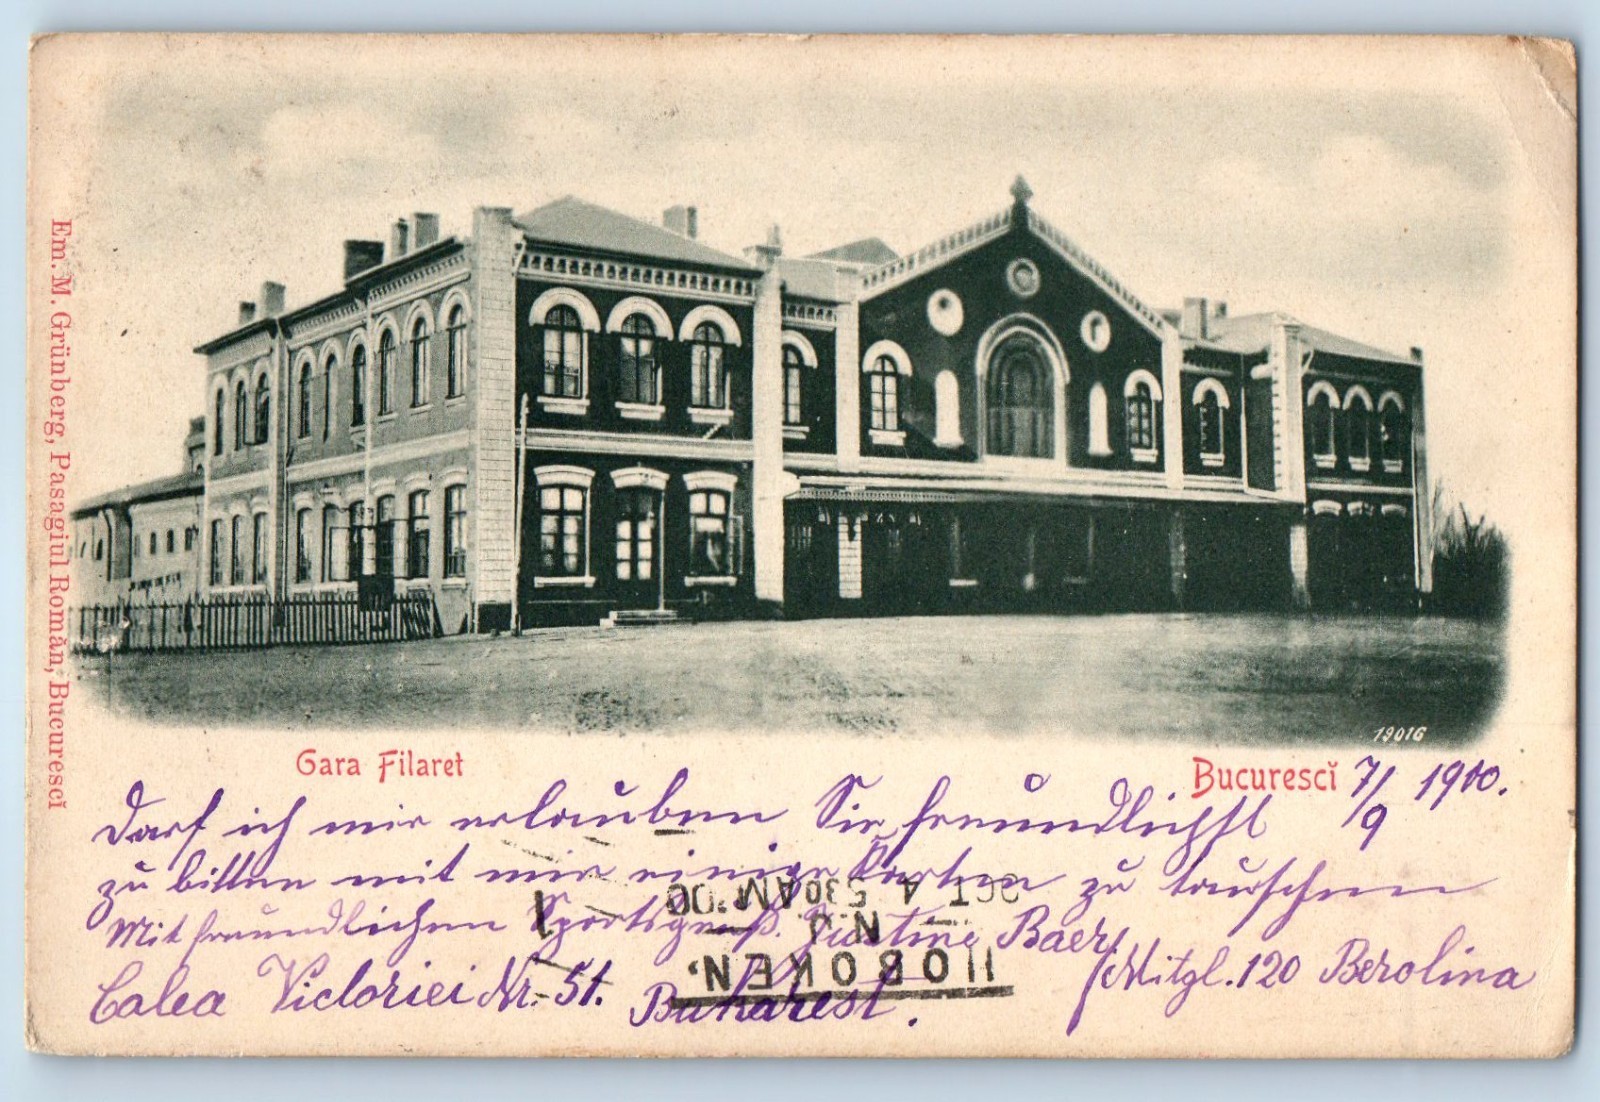 Em. M. Grünberg, Pasagiul Român, Bucurescĭ
19016
Gara Filaret
Bucurescĭ 7/9 1900.
Darf ich mir erlauben Sie freundlichst
zu bitten mit mir einige Karten zu tauschen
Mit freundlichem Sportsgruß. Justine Baer
(Mitgl. 120 Berolina
Calea Victoriei Nr. 51. Bukarest.
HOBOKEN,
N.J.
OCT 4 530AM '00
1